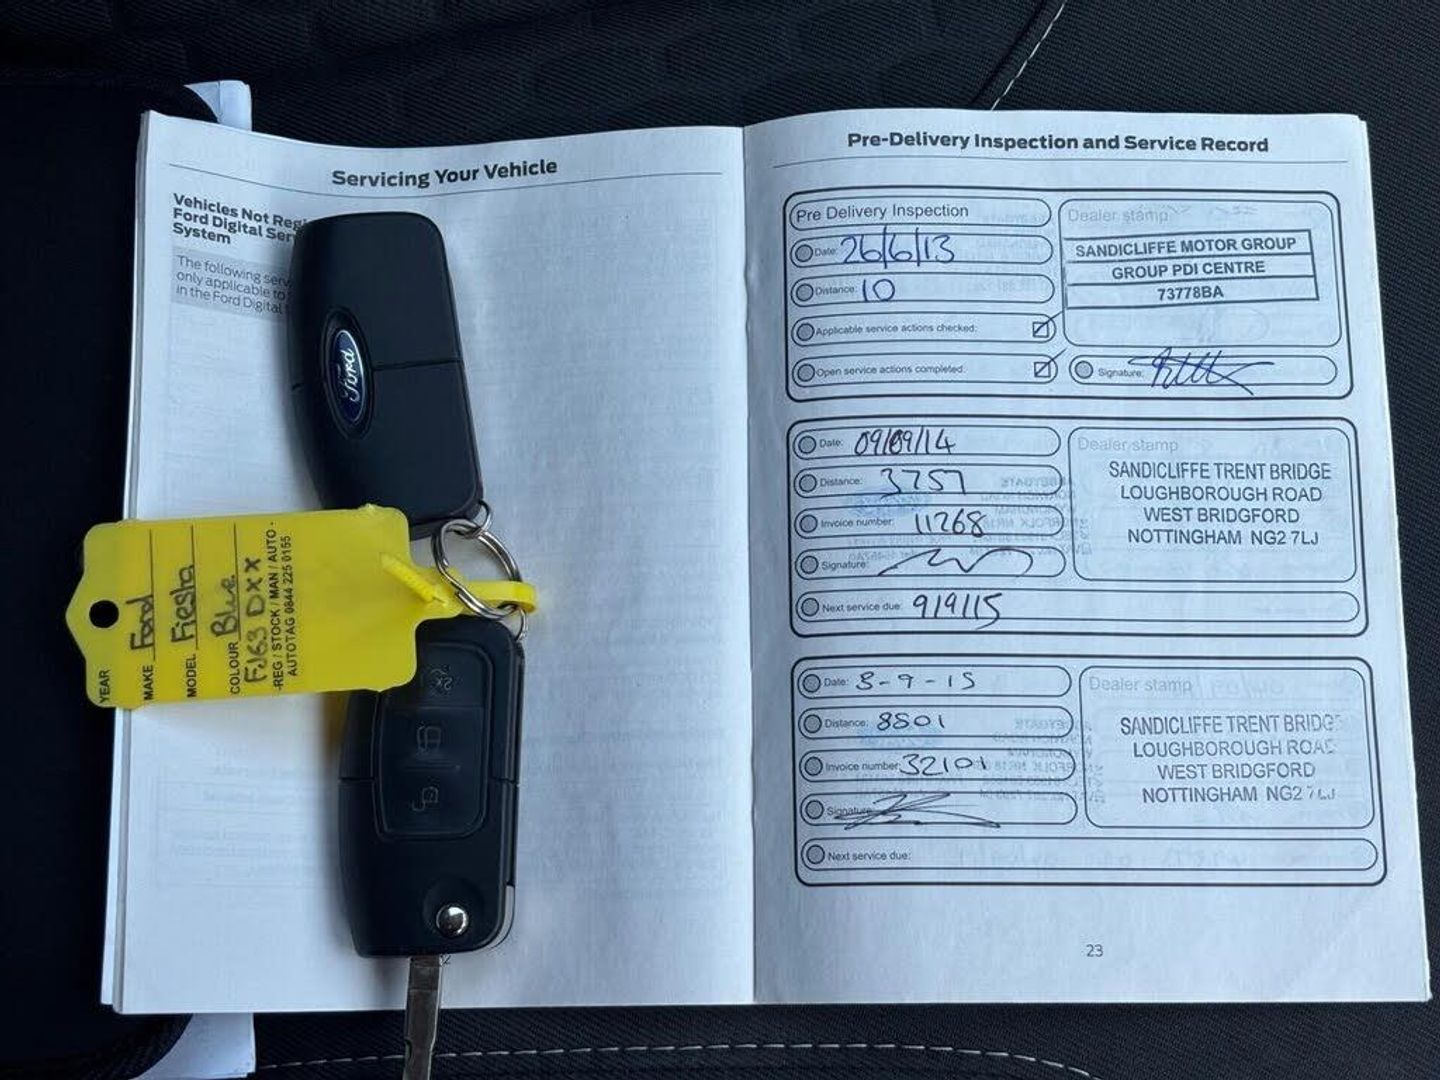 Servicing Your Vehicle
Vehicles Not Regi
Ford Digital Serv
System
The following serv
only applicable to
in the Ford Digital
Ford
YEAR
MAKE Ford
MODEL Fiesta
COLOUR Blue
FJ63 DXX
-REG / STOCK / MAN / AUTO -
AUTOTAG 0844 225 0155
2x
Pre-Delivery Inspection and Service Record
Pre Delivery Inspection
Date: 26/6/13
Distance: 10
Applicable service actions checked:
Open service actions completed:
Dealer stamp
SANDICLIFFE MOTOR GROUP
GROUP PDI CENTRE
73778BA
Signature:
Date: 09/09/14
Distance: 3757
Invoice number: 11268
Signature:
Next service due: 9/9/15
Dealer stamp
SANDICLIFFE TRENT BRIDGE
LOUGHBOROUGH ROAD
WEST BRIDGFORD
NOTTINGHAM NG2 7LJ
Date: 8-9-15
Distance: 8801
Invoice number: 32101
Signature:
Next service due:
Dealer stamp
SANDICLIFFE TRENT BRIDGE
LOUGHBOROUGH ROAD
WEST BRIDGFORD
NOTTINGHAM NG2 7LJ
23